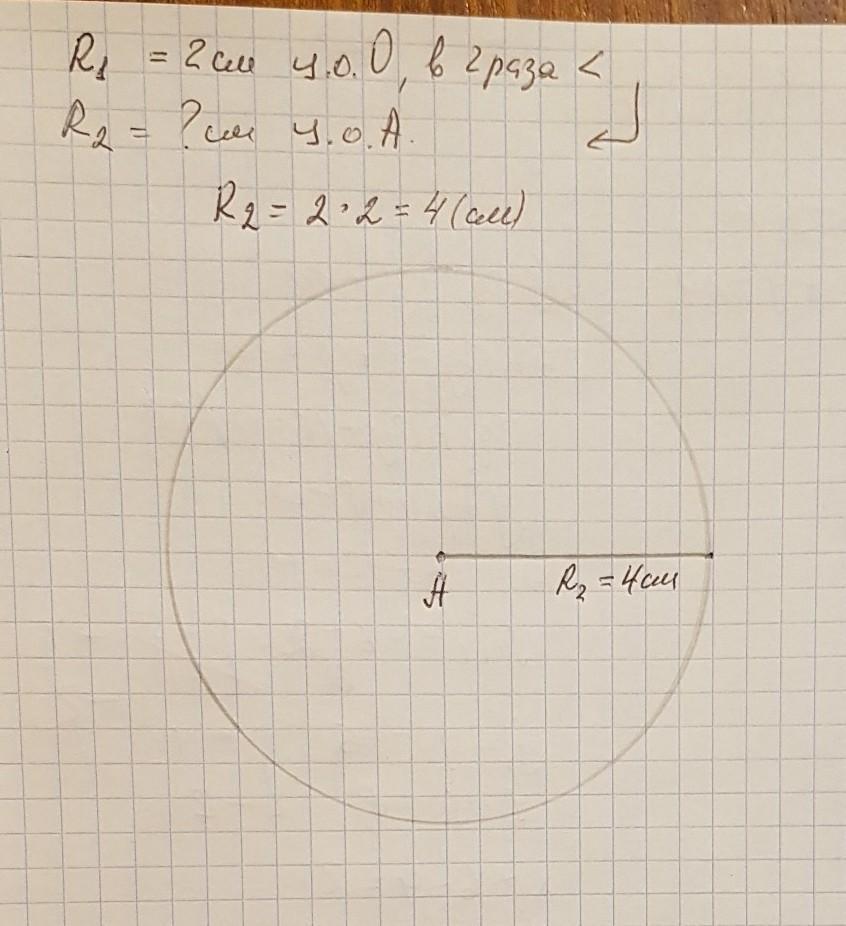 R₁ = 2 см ц.о. О, в 2 раза <
R₂ = ? см ц.о. А.
R₂ = 2 · 2 = 4 (см)
А
R₂ = 4 см